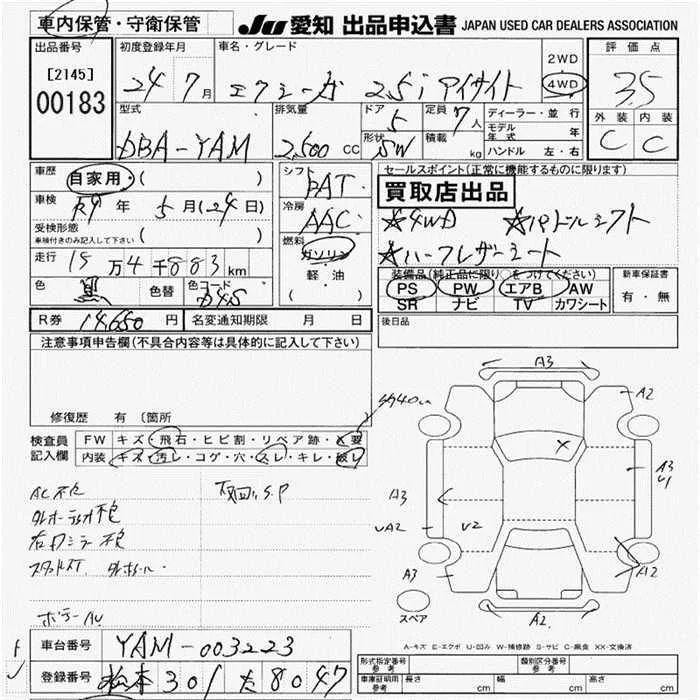 車内保管・守衛保管
JU 愛知 出品申込書 JAPAN USED CAR DEALERS ASSOCIATION
出品番号 初度登録年月 車名・グレード 評価点
[2145]
00183
24 7月 エクシーガ 2.5i アイサイト 2WD 4WD 3.5
型式 排気量 ドア 定員 ディーラー・並行 外装 内装
DBA-YAM 2,500 cc 5 7人 モデル年式 年 C C
形状 SW 積載 kg ハンドル 左・右
車歴 自家用・( ) シフト FAT セールスポイント(正常に機能するものに限ります)
買取店出品
車検 R9年 5月(24日) 冷房 AAC ☆4WD ☆パドルシフト
受検形態 車検付きのみ記入して下さい ( ) 燃料 ガソリン ☆ハーフレザーシート
走行 15万4千883km 軽・油 装備品(純正品に限り○をつけてください) 新車保証書
色 黒 色替 色コード D4S ( ) PS PW エアB AW 有・無
SR ナビ TV カワシート
R券 14,650円 名変通知期限 月 日 後日品
注意事項申告欄(不具合内容等は具体的に記入して下さい)
修復歴 有 〔箇所
検査員 FW キズ・飛石・ヒビ割・リペア跡・X要
記入欄 内装 キズ・汚レ・コゲ・穴・スレ・キレ・破レ
AC不良
外オーディオ不良
右ドアミラー不良
スタッドレスT. 外ホイール.
ボデーAU
下回りS.P
A3
A2
A3
U1
A3
UA2
V2
X
A3
A2
A2
スペア
A-キズ E-エクボ U-凹み W-補修跡 S-サビ C-腐食 XX-交換済
車台番号 YAM-003223
登録番号 松本 301 た 8047
形式指定番号 参考 類別区分番号 参考
車庫証明用 参考 長さ cm 幅 cm 高さ cm